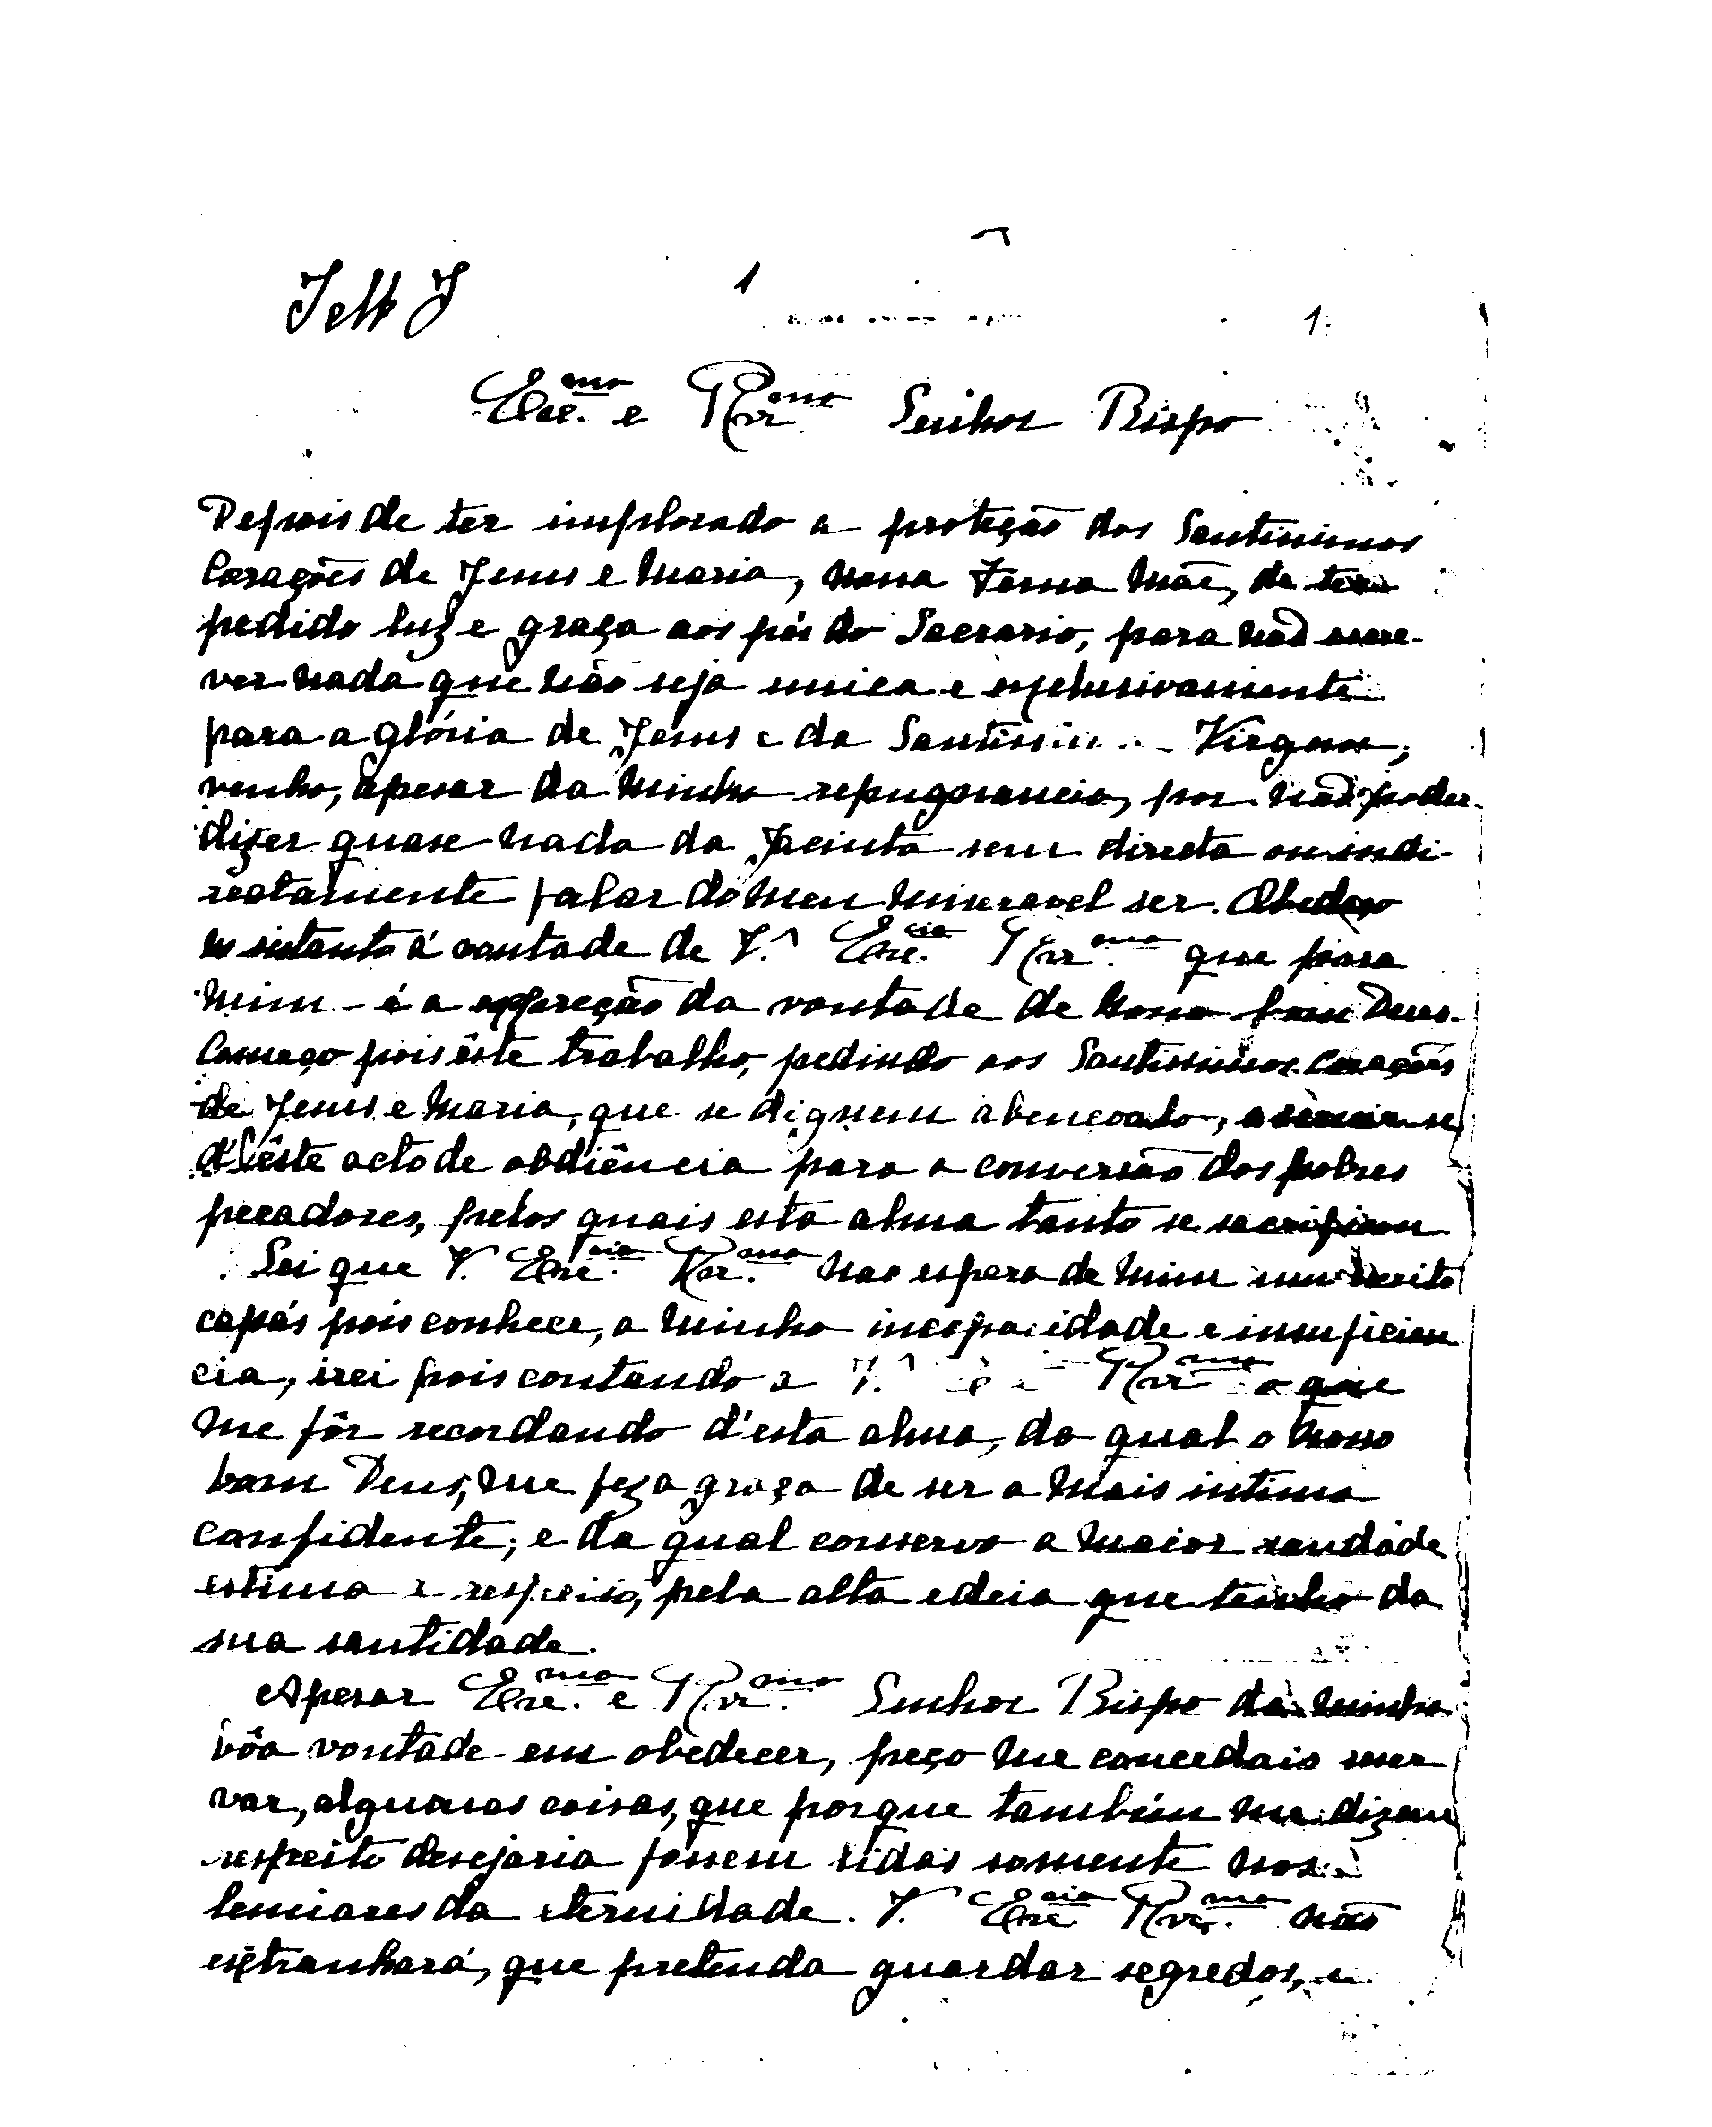 1
1
Exc.mo e Rv.mo Senhor Bispo
Depois de ter implorado a proteção dos Santissimos
Corações de Jesus e Maria, nossa Terna Mãe, de ter
pedido luz e graça aos pés do Sacrario, para não escre-
ver nada que não seja unica e exclusivamente
para a glória de Jesus e da Santissi Virgem,
venho, apesar da minha repugnancia, por não poder
dizer quase nada da Jacinta sem directa ou indi-
reatamente falar do meu miseravel ser. Obedeço
no intanto á vontade de V.ª Exc.cia Rv.ma que para
mim é a expreção da vontade de nosso bom Deus.
Começo pois êste trabalho, pedindo aos Santissimos Corações
de Jesus e Maria, que se dignem abençoalo, e servir-se
d'êste acto de obdiência para a conversão dos pobres
pecadores, pelos quais esta alma tanto se sacrificou
Sei que V. Exc.cia Rv.ma nao espera de mim um escrito
capás pois conhece, a minha incapacidade e insuficien
cia, irei pois contando a V.ª Rv.ma o que
me fôr recordando d'esta alma, da qual o nosso
bom Deus, me fez a graça de ser a mais intima
confidente; e da qual conservo a maior saudade
estima e respeito, pela alta edeia que tenho da
sua santidade.
Apesar Exc.mo e Rv.mo Senhor Bispo da minha
bôa vontade em obedecer, peço me concedais reser
var, algumas coisas, que porque também me dizem
respeito desejaria fossem lidas somente nos
lemiares da eternidade. V. Exc.cia Rv.ma não
extranhará, que pretenda guardar segredos, e